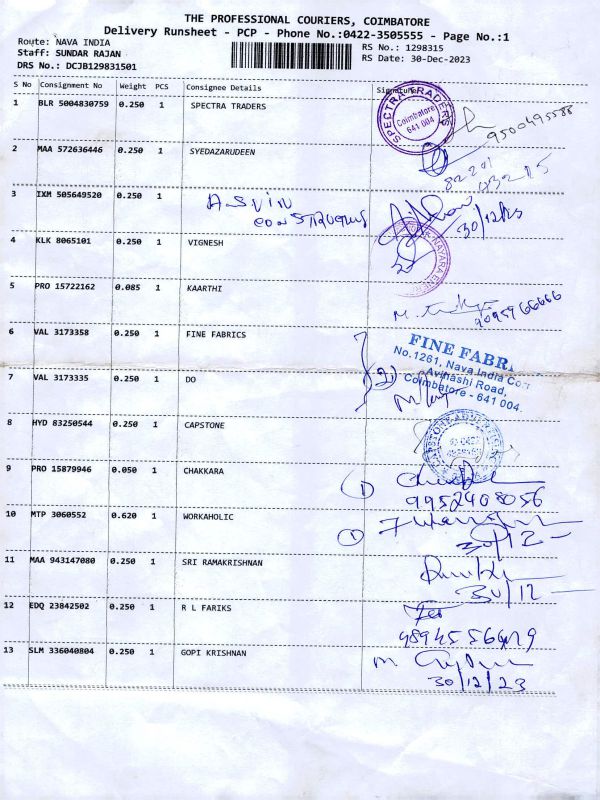 THE PROFESSIONAL COURIERS, COIMBATORE
Delivery Runsheet - PCP - Phone No.:0422-3505555 - Page No.:1
Route: NAVA INDIA
Staff: SUNDAR RAJAN
DRS No.: DCJB129831501
RS No.: 1298315
RS Date: 30-Dec-2023
S No Consignment No Weight PCS Consignee Details Signature
1 BLR 5004830759 0.250 1 SPECTRA TRADERS
SPECTRA TRADERS
Coimbatore
641 004
9500495588
2 MAA 572636446 0.250 1 SYEDAZARUDEEN
3 IXM 505649520 0.250 1 ASVIN
30/12
4 KLK 8065101 0.250 1 VIGNESH
5 PRO 15722162 0.085 1 KAARTHI
6 VAL 3173358 0.250 1 FINE FABRICS
FINE FABR
No.1261, Nava India
Avinashi Road,
Coimbatore - 641 004.
7 VAL 3173335 0.250 1 DO
(2)
8 HYD 83250544 0.250 1 CAPSTONE
9 PRO 15879946 0.050 1 CHAKKARA
9952408056
10 MTP 3060552 0.620 1 WORKAHOLIC
30/12
11 MAA 943147080 0.250 1 SRI RAMAKRISHNAN
30/12
12 EDQ 23842502 0.250 1 R L FARIKS
13 SLM 336040804 0.250 1 GOPI KRISHNAN
30/12/23